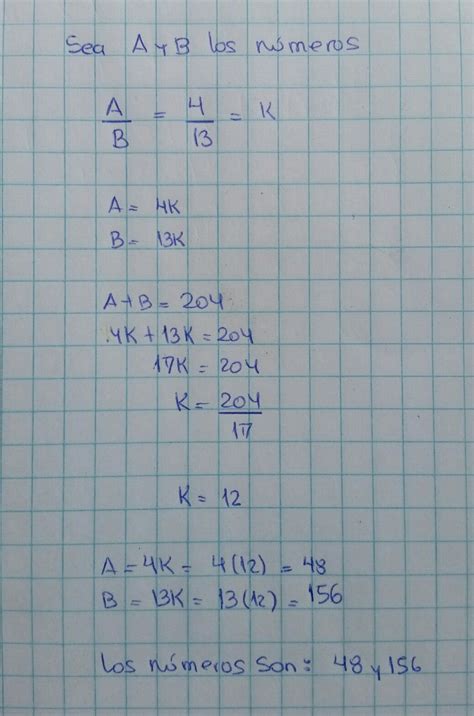 Sea A y B los números
A/B = 4/13 = K
A = 4K
B = 13K
A+B = 204
4K + 13K = 204
17K = 204
K = 204/17
K = 12
A = 4K = 4(12) = 48
B = 13K = 13(12) = 156
los números son: 48 y 156